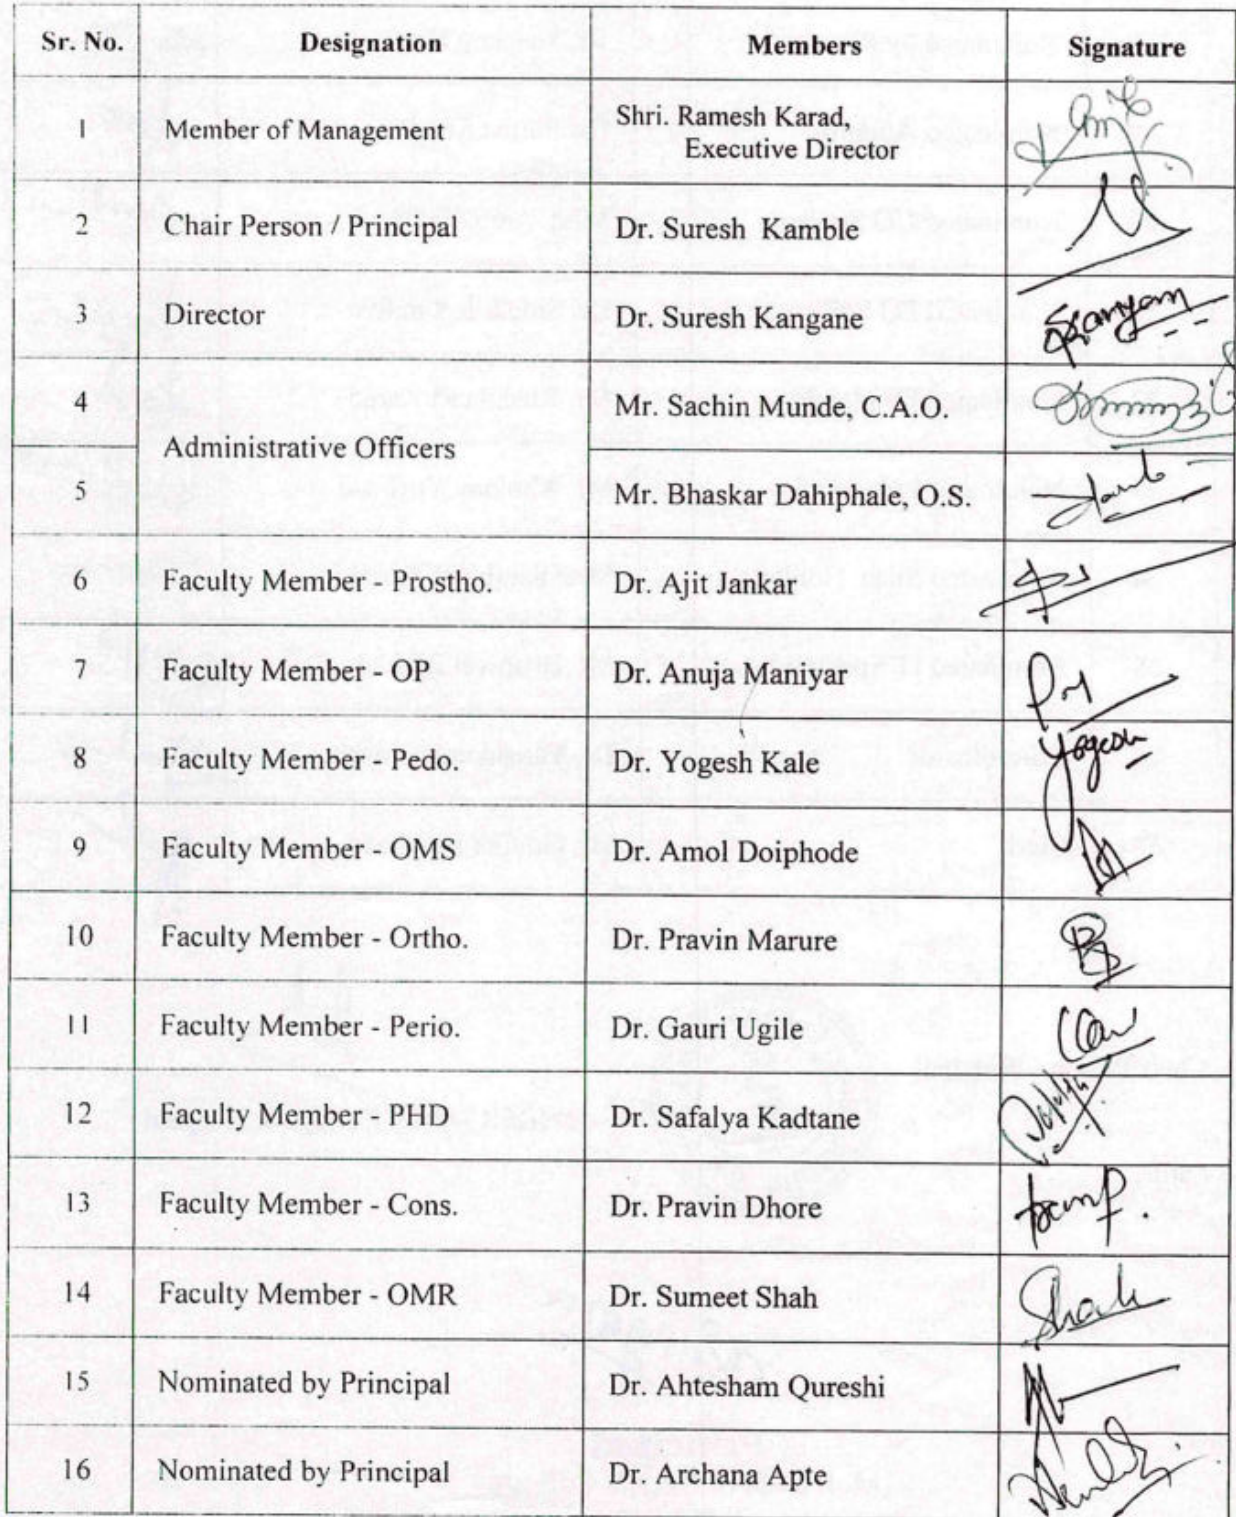 Sr. No. Designation Members Signature
1 Member of Management Shri. Ramesh Karad,
Executive Director
2 Chair Person / Principal Dr. Suresh Kamble
3 Director Dr. Suresh Kangane
4 Mr. Sachin Munde, C.A.O.
Administrative Officers
5 Mr. Bhaskar Dahiphale, O.S.
6 Faculty Member - Prostho. Dr. Ajit Jankar
7 Faculty Member - OP Dr. Anuja Maniyar
8 Faculty Member - Pedo. Dr. Yogesh Kale Yogesh
9 Faculty Member - OMS Dr. Amol Doiphode
10 Faculty Member - Ortho. Dr. Pravin Marure
11 Faculty Member - Perio. Dr. Gauri Ugile
12 Faculty Member - PHD Dr. Safalya Kadtane
13 Faculty Member - Cons. Dr. Pravin Dhore
14 Faculty Member - OMR Dr. Sumeet Shah Shah
15 Nominated by Principal Dr. Ahtesham Qureshi
16 Nominated by Principal Dr. Archana Apte